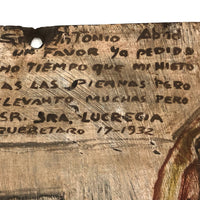 S. ANTONIO ABAD
UN FAVOR YA PEDIDO
MO TIEMPO QUE MI NIETO
AS LAS PIERNAS PERO
LLEVANTO MUCHAS PERO
SR. SRA. LUCREGIA
QUERETARO 17-1932